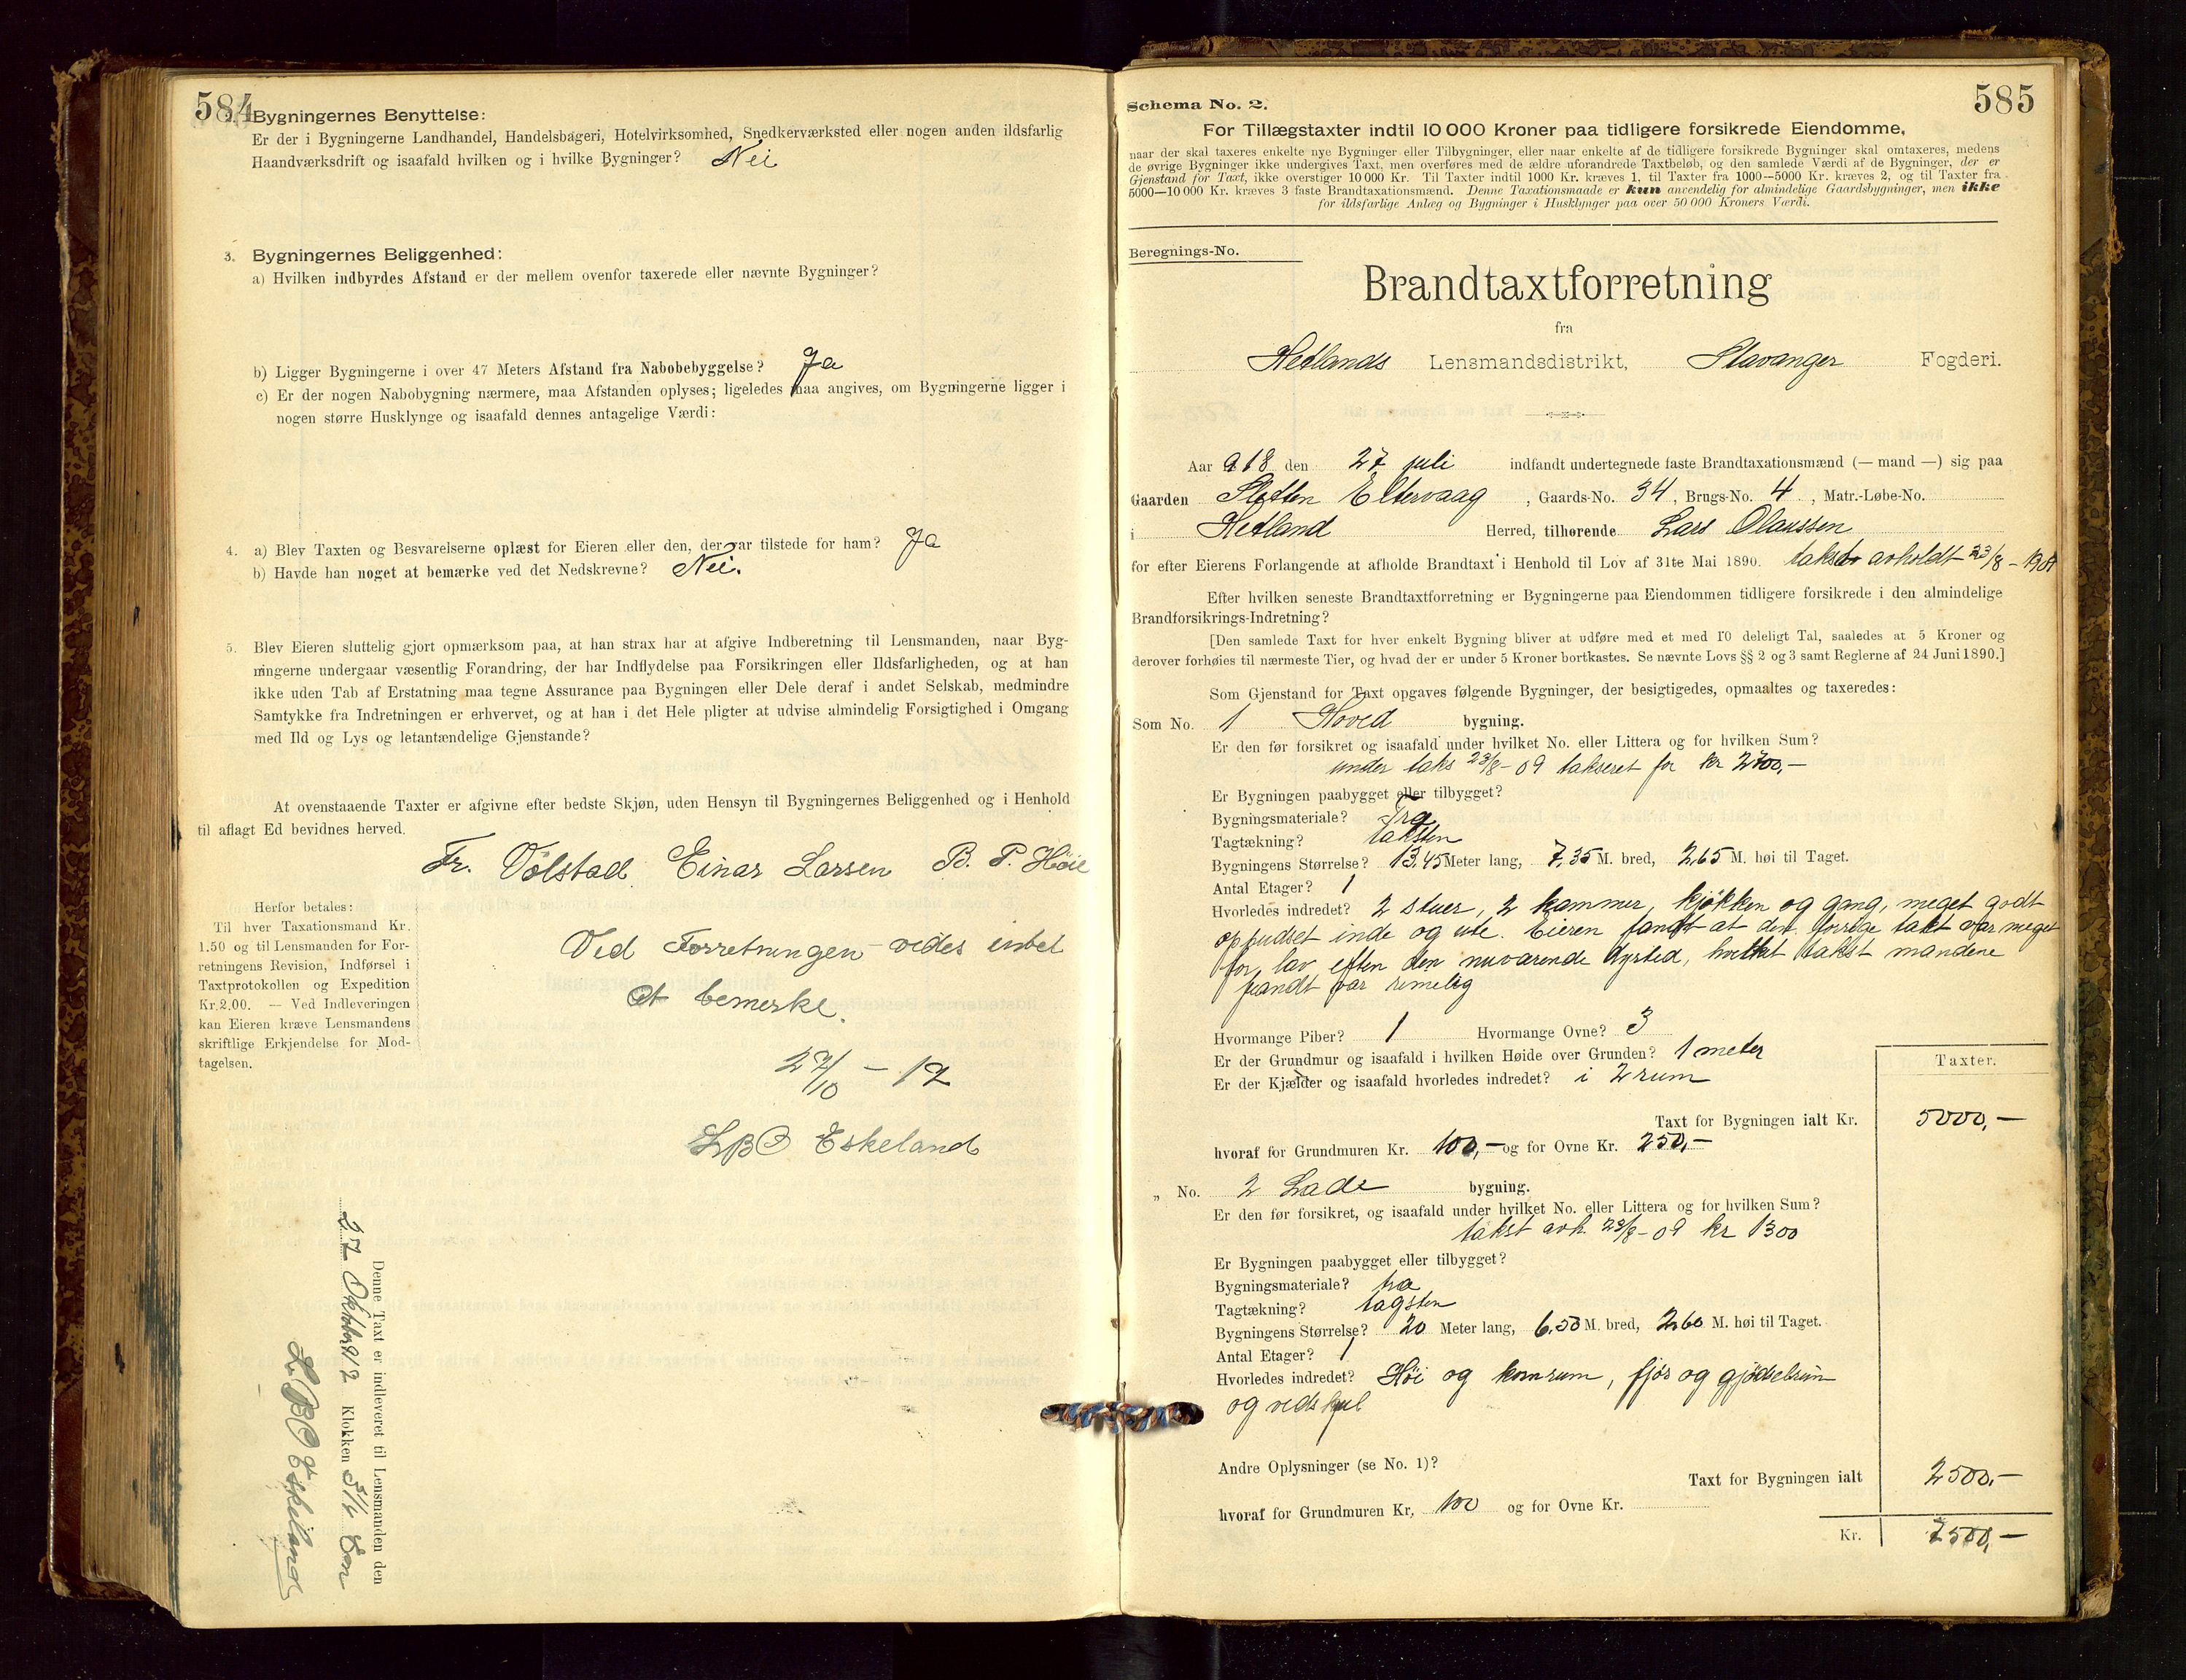 584
Bygningernes Benyttelse:
Er der i Bygningerne Landhandel, Handelsbageri, Hotelvirksomhed, Snedkerværksted eller nogen anden ildsfarlig
Haandværksdrift og isaafald hvilken og i hvilke Bygninger? Nei
3. Bygningernes Beliggenhed:
a) Hvilken indbyrdes Afstand er der mellem ovenfor taxerede eller nævnte Bygninger?
b) Ligger Bygningerne i over 47 Meters Afstand fra Nabobebyggelse? Ja
c) Er der nogen Nabobygning nærmere, maa Afstanden oplyses; ligeledes maa angives, om Bygningerne ligger i
nogen større Husklynge og isaafald dennes antagelige Værdi:
4. a) Blev Taxten og Besvarelserne oplæst for Eieren eller den, der var tilstede for ham? Ja
b) Havde han noget at bemærke ved det Nedskrevne? Nei.
5. Blev Eieren sluttelig gjort opmærksom paa, at han strax har at afgive Indberetning til Lensmanden, naar Byg-
ningerne undergaar væsentlig Forandring, der har Indflydelse paa Forsikringen eller Ildsfarligheden, og at han
ikke uden Tab af Erstatning maa tegne Assurance paa Bygningen eller Dele deraf i andet Selskab, medmindre
Samtykke fra Indretningen er erhvervet, og at han i det Hele pligter at udvise almindelig Forsigtighed i Omgang
med Ild og Lys og letantændelige Gjenstande?
At ovenstaaende Taxter er afgivne efter bedste Skjøn, uden Hensyn til Bygningernes Beliggenhed og i Henhold
til aflagt Ed bevidnes herved.
Fr. Volstad Einar Larsen B. P. Høie
Herfor betales:
Til hver Taxationsmand Kr.
1.50 og til Lensmanden for For-
retningens Revision, Indførsel i
Taxtprotokollen og Expedition
Kr. 2.00. — Ved Indleveringen
kan Eieren kræve Lensmandens
skriftlige Erkjendelse for Mod-
tagelsen.
Ved Forretningen vides intet
at bemerke.
27/10 - 12
LBO Eskeland
Denne Taxt er indleveret til Lensmanden den
27 Oktober 912 Klokken
LBO Eskeland
585
Schema No. 2.
For Tillægstaxter indtil 10 000 Kroner paa tidligere forsikrede Eiendomme,
naar der skal taxeres enkelte nye Bygninger eller Tilbygninger, eller naar enkelte af de tidligere forsikrede Bygninger skal omtaxeres, medens
de øvrige Bygninger ikke undergives Taxt, men overføres med de ældre uforandrede Taxtbeløb, og den samlede Værdi af de Bygninger, der er
Gjenstand for Taxt, ikke overstiger 10 000 Kr. Til Taxter indtil 1000 Kr. kræves 1, til Taxter fra 1000—5000 Kr. kræves 2, og til Taxter fra
5000—10 000 Kr. kræves 3 faste Brandtaxationsmænd. Denne Taxationsmaade er kun anvendelig for almindelige Gaardsbygninger, men ikke
for ildsfarlige Anlæg og Bygninger i Husklynger paa over 50 000 Kroners Værdi.
Beregnings-No.
Brandtaxtforretning
fra
Hetlands Lensmandsdistrikt, Stavanger Fogderi.
Aar 918 den 27 juli indfandt undertegnede faste Brandtaxationsmænd (— mand —) sig paa
Gaarden Sletten Eltervaag, Gaards-No. 34, Brugs-No. 4, Matr.-Løbe-No.
i Hetland Herred, tilhørende Lars Olaussen
for efter Eierens Forlangende at afholde Brandtaxt i Henhold til Lov af 31te Mai 1890. takst avholdt 23/8 - 1909
Efter hvilken seneste Brandtaxtforretning er Bygningerne paa Eiendommen tidligere forsikrede i den almindelige
Brandforsikrings-Indretning?
[Den samlede Taxt for hver enkelt Bygning bliver at udføre med et med 10 deleligt Tal, saaledes at 5 Kroner og
derover forhøies til nærmeste Tier, og hvad der er under 5 Kroner bortkastes. Se nævnte Lovs §§ 2 og 3 samt Reglerne af 24 Juni 1890.]
Som Gjenstand for Taxt opgaves følgende Bygninger, der besigtigedes, opmaaltes og taxeredes:
Som No. 1 Hoved bygning.
Er den før forsikret og isaafald under hvilket No. eller Littera og for hvilken Sum?
under taks 23/8-09 takseret for kr 2700,-
Er Bygningen paabygget eller tilbygget?
Bygningsmateriale? Træ
Tagtækning? taksten
Bygningens Størrelse? 13,45 Meter lang, 7,35 M. bred, 2,65 M. høi til Taget.
Antal Etager? 1
Hvorledes indredet? 2 stuer, 2 kammer, kjøkken og gang, meget godt
oppudset inde og ute. Eieren fandt at den forrige takst var meget
for lav efter den nuværende dyrtid, hvilket takst mandene
fandt var rimelig
Hvormange Piber? 1 Hvormange Ovne? 3
Er der Grundmur og isaafald i hvilken Høide over Grunden? 1 meter
Er der Kjælder og isaafald hvorledes indredet? i 2 rum
Taxter.
Taxt for Bygningen ialt Kr. 5000,-
hvoraf for Grundmuren Kr. 100,- og for Ovne Kr. 250,-
„ No. 2 Lade bygning.
Er den før forsikret, og isaafald under hvilket No. eller Littera og for hvilken Sum?
takst avh. 23/8-09 kr 1300
Er Bygningen paabygget eller tilbygget?
Bygningsmateriale? træ
Tagtækning? tagsten
Bygningens Størrelse? 20 Meter lang, 6,50 M. bred, 2,60 M. høi til Taget.
Antal Etager? 1
Hvorledes indredet? Høi og kornrum, fjøs og gjødselrum
og vedskjul
Andre Oplysninger (se No. 1)?
Taxt for Bygningen ialt 2500,-
hvoraf for Grundmuren Kr. 100 og for Ovne Kr.
Kr. 7500,-